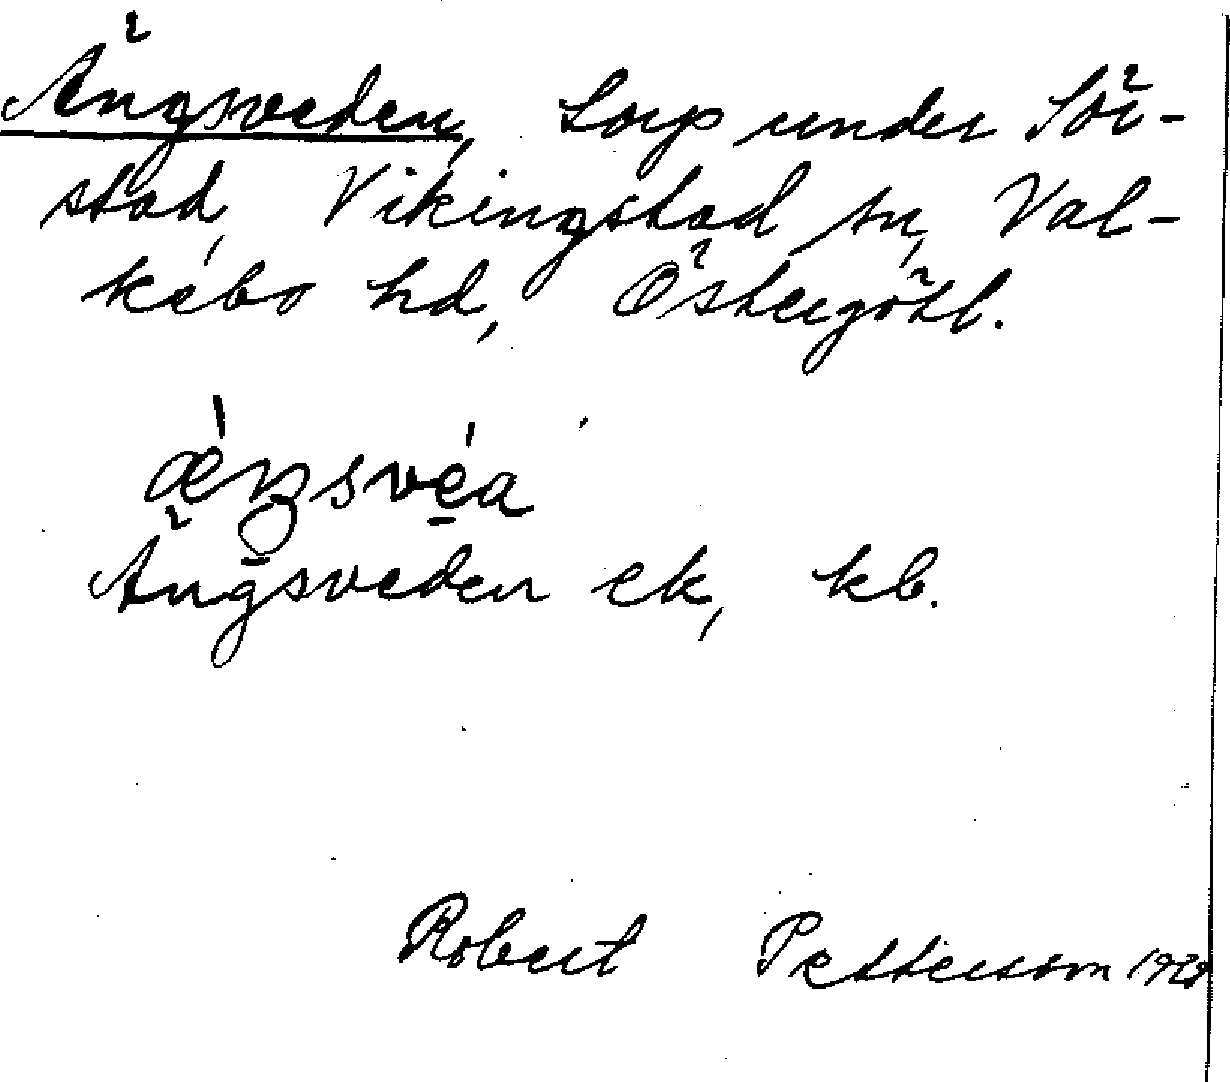 Ängsveden, torp under Sör-
stad, Vikingstad sn, Val-
kebo hd, Östergötl.
Ängsveden ek, kb.
Robert Pettersson